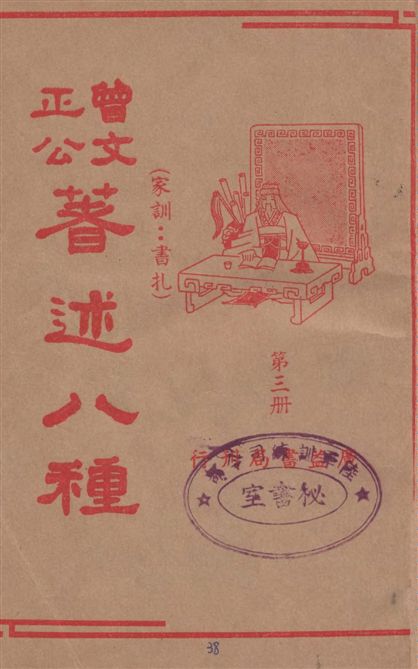 曾文正公
著述八種
(家訓：書扎)
第三册
廣益書局刊行
陸軍訓練司令部
秘書室
38